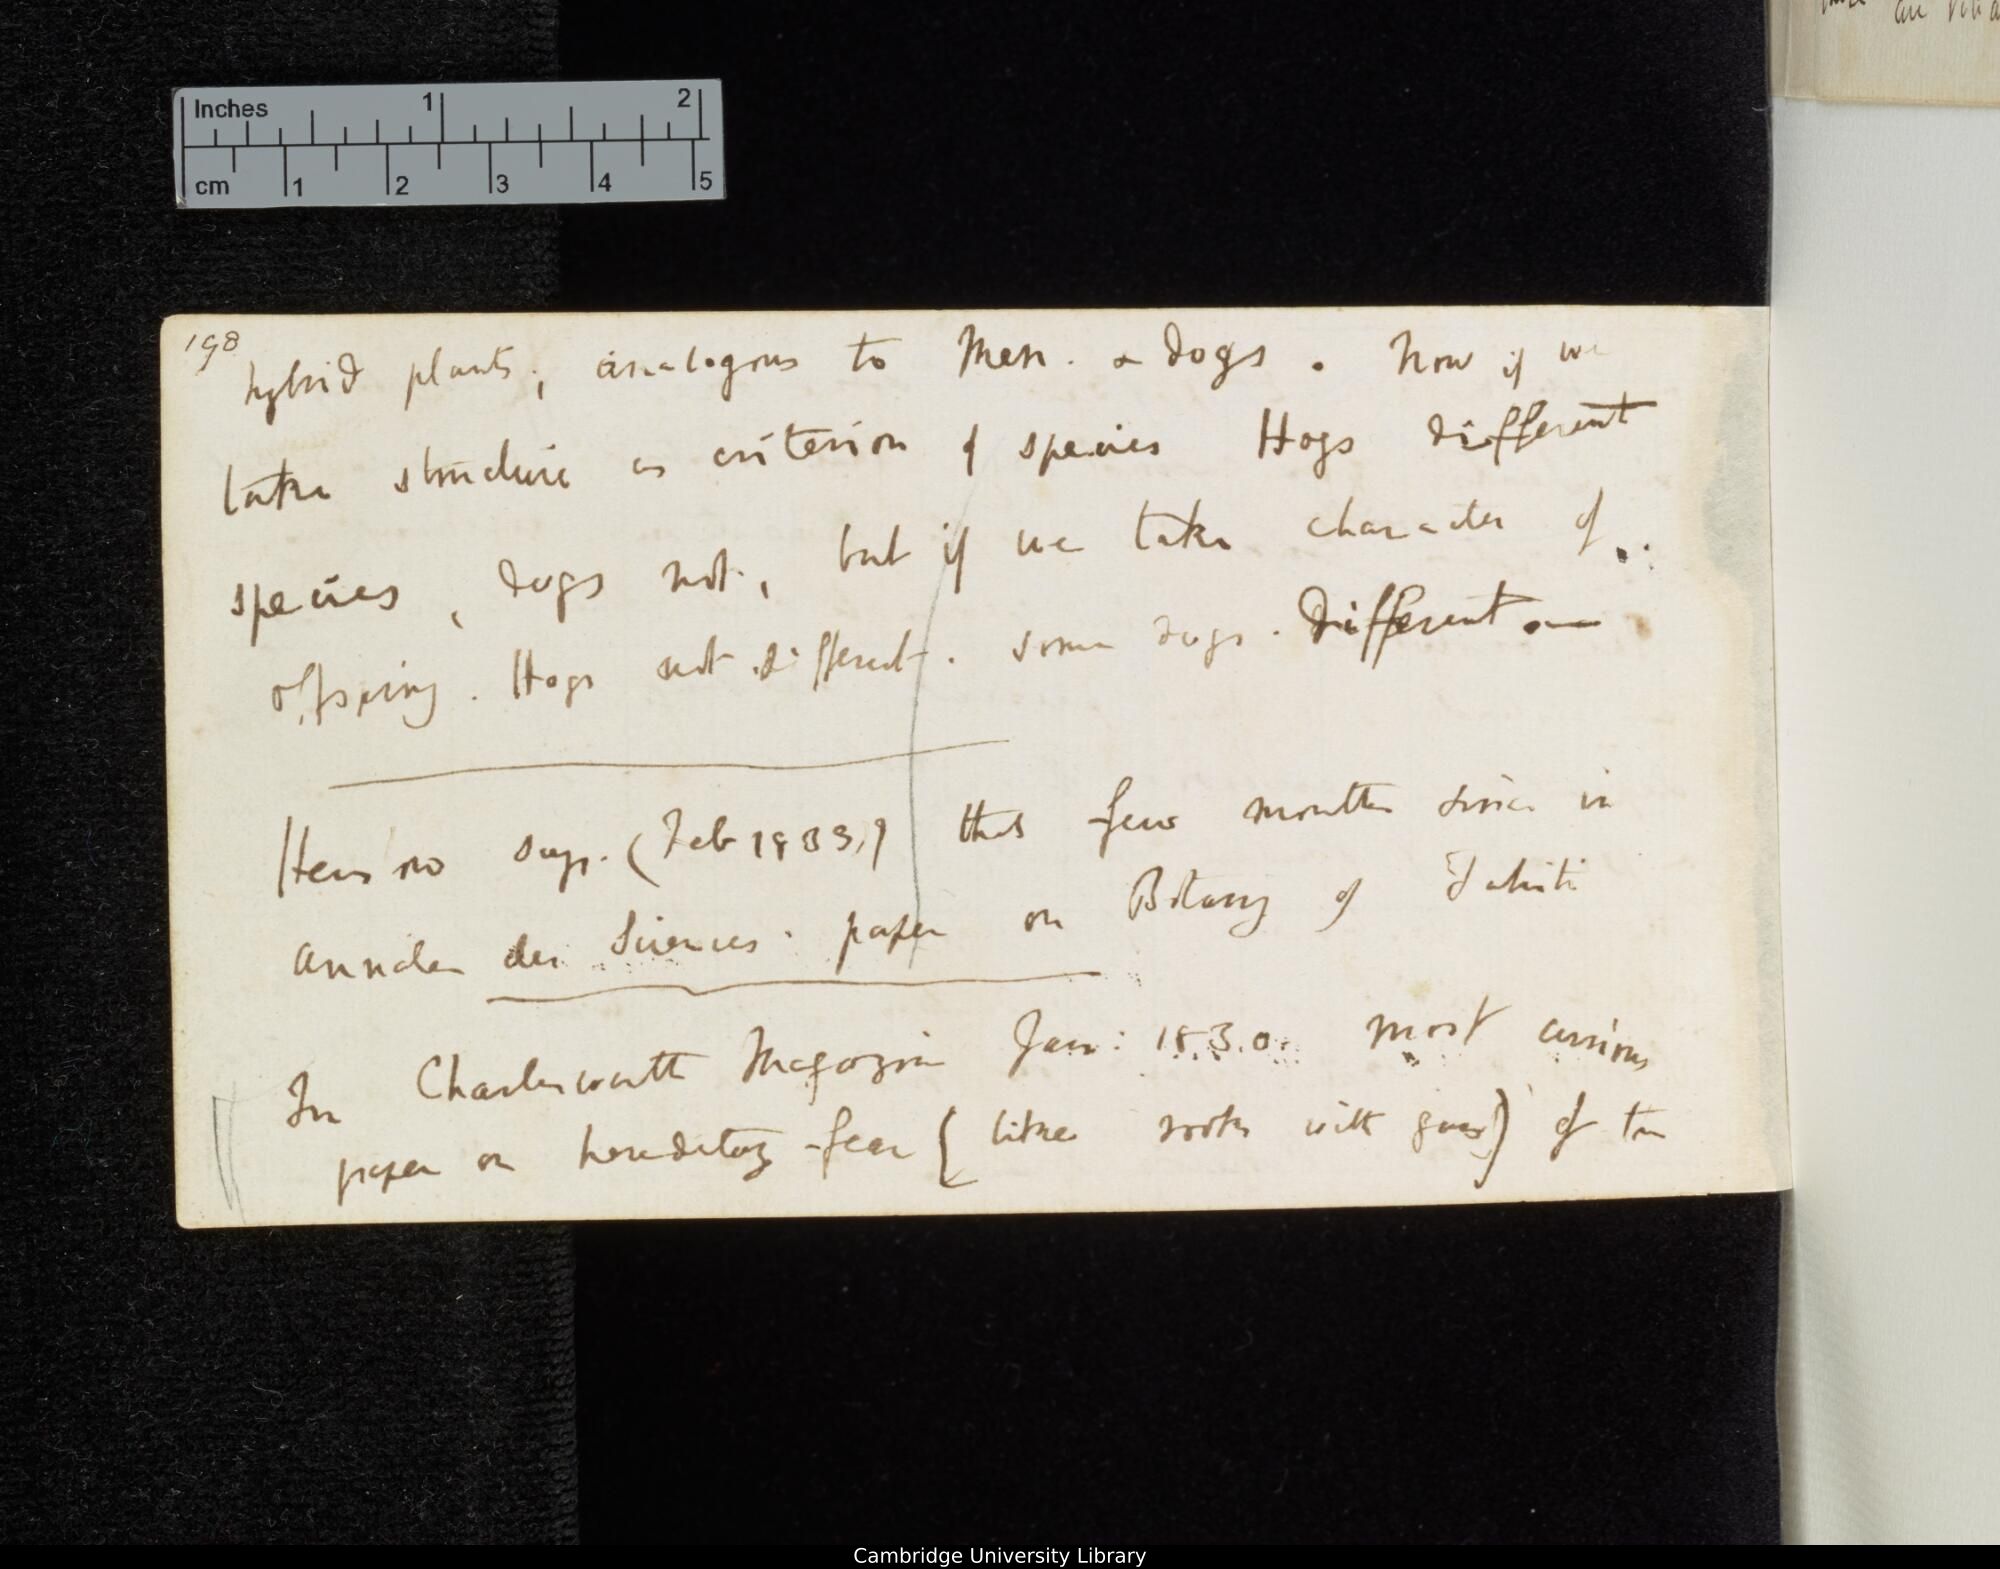 Inches 1 2
cm 1 2 3 4 5
198
hybrid plants; analogous to Men. & dogs. Now if we
take structure as criterion of species Hogs different
species, dogs not, but if we take character of
offspring. Hogs not different. some dogs. different.—
Henslow says. (Feb 1838) that few months since in
Annales des Sciences. paper on Botany of Tahiti
In Charlesworth Magazine Jan: 1830. most curious
paper on hereditary fear (like rooks with guns) of the
Cambridge University Library